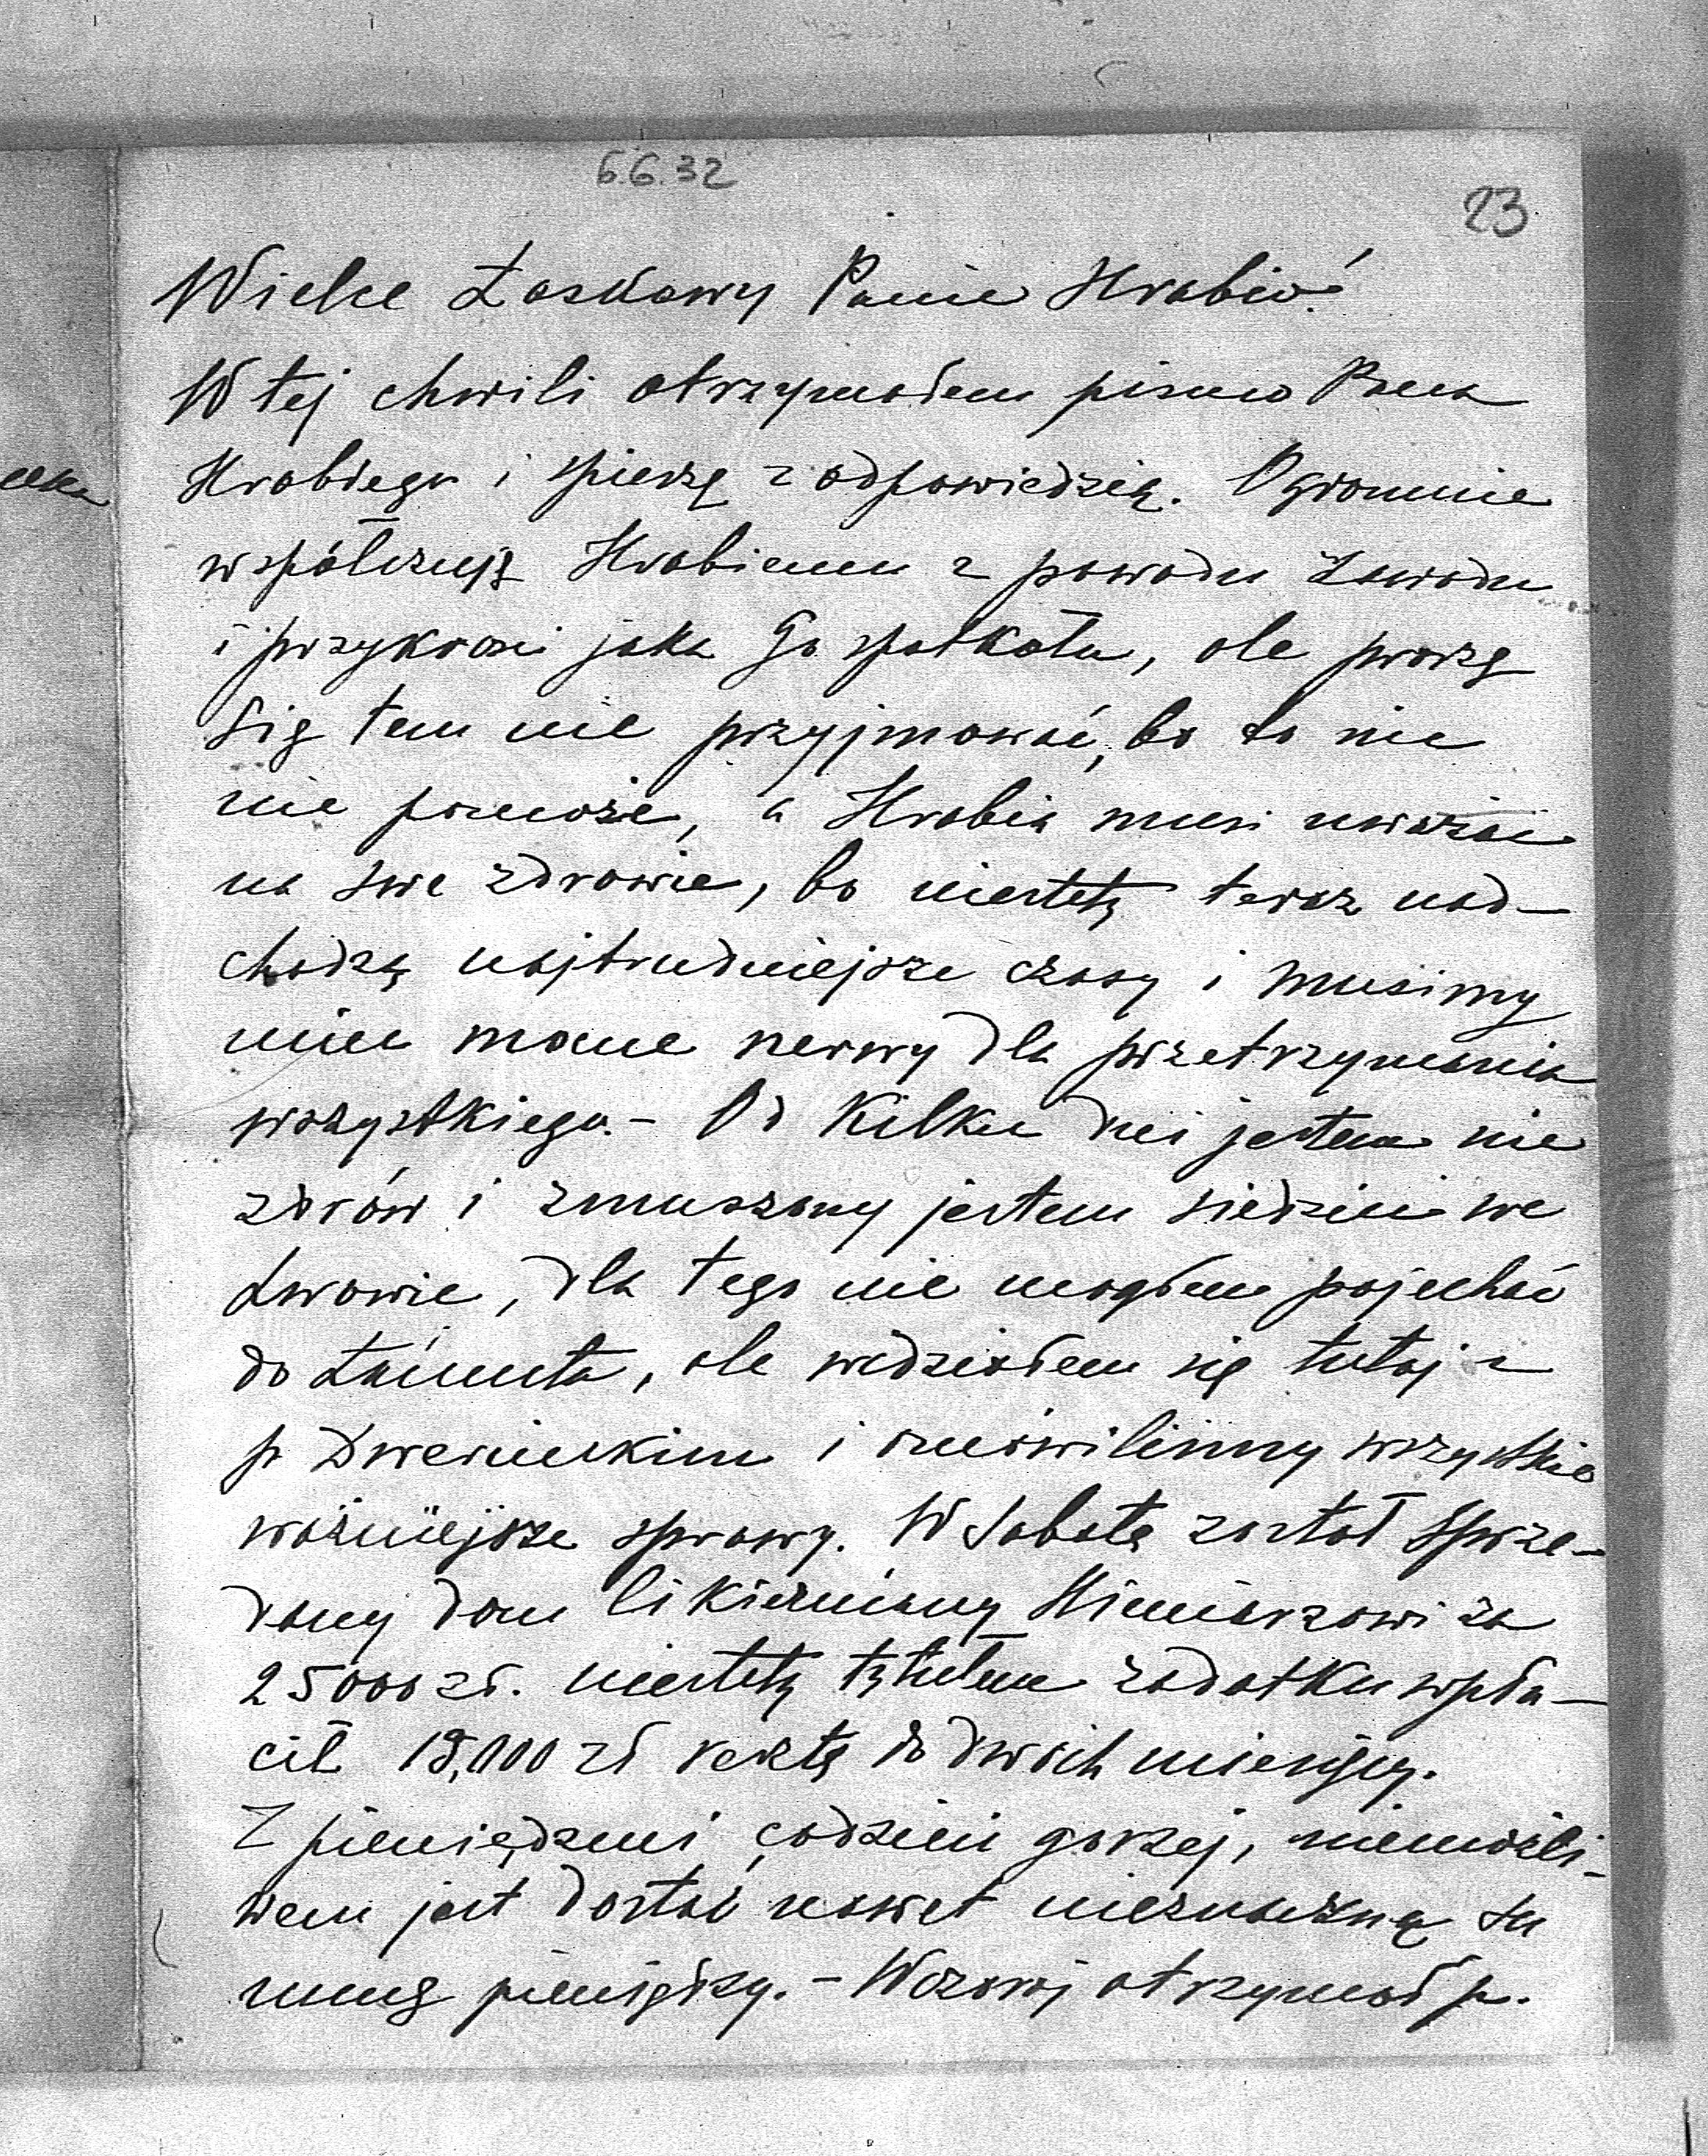 6.6.32
23
Wielce Łaskawy Panie Hrabio!
W tej chwili otrzymałem pismo Pana
Hrabiego i spieszę z odpowiedzią. Ogromnie
współczuję Hrabiemu z powodu zawodu
i przykrości jaka Go spotkała, ale proszę
się tem nie przyjmować, bo to nic
nie pomoże, a Hrabia musi uważać
na swe zdrowie, bo niestety teraz nad-
chodzą najtrudniejsze czasy i musimy
mieć mocne nerwy dla przetrzymania
wszystkiego. - Od kilku dni jestem nie
zdrów i zmuszony jestem siedzieć we
Lwowie, dla tego nie mogłem pojechać
do Łańcuta, ale widziałem się tutaj z
p Dwernickim i omówiliśmy wszystkie
ważniejsze sprawy. W Sobotę został sprze-
dany dom likierniany za
25000 zł. niestety tytułem zadatku wpła-
cił 18,000 zł resztę do dwóch miesięcy.
Z pieniędzmi codzień gorzej, niemożli-
wem jest dostać nawet nieznaczną su
mmę pieniędzy. - Wczoraj otrzymał p.